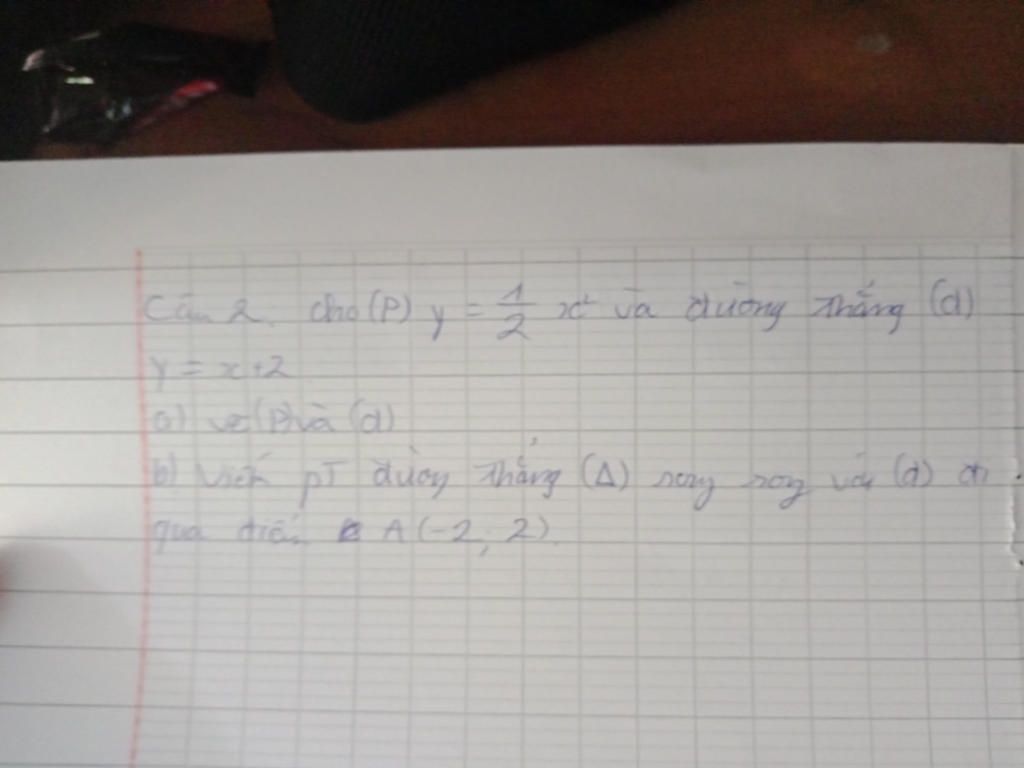 Câu 2. cho (P) y = 1/2 x² và đường thẳng (d)
y = x+2
a) vẽ (P) và (d)
b) Viết pT đường thẳng (Δ) song song với (d) đi
qua điểm A (-2; 2).